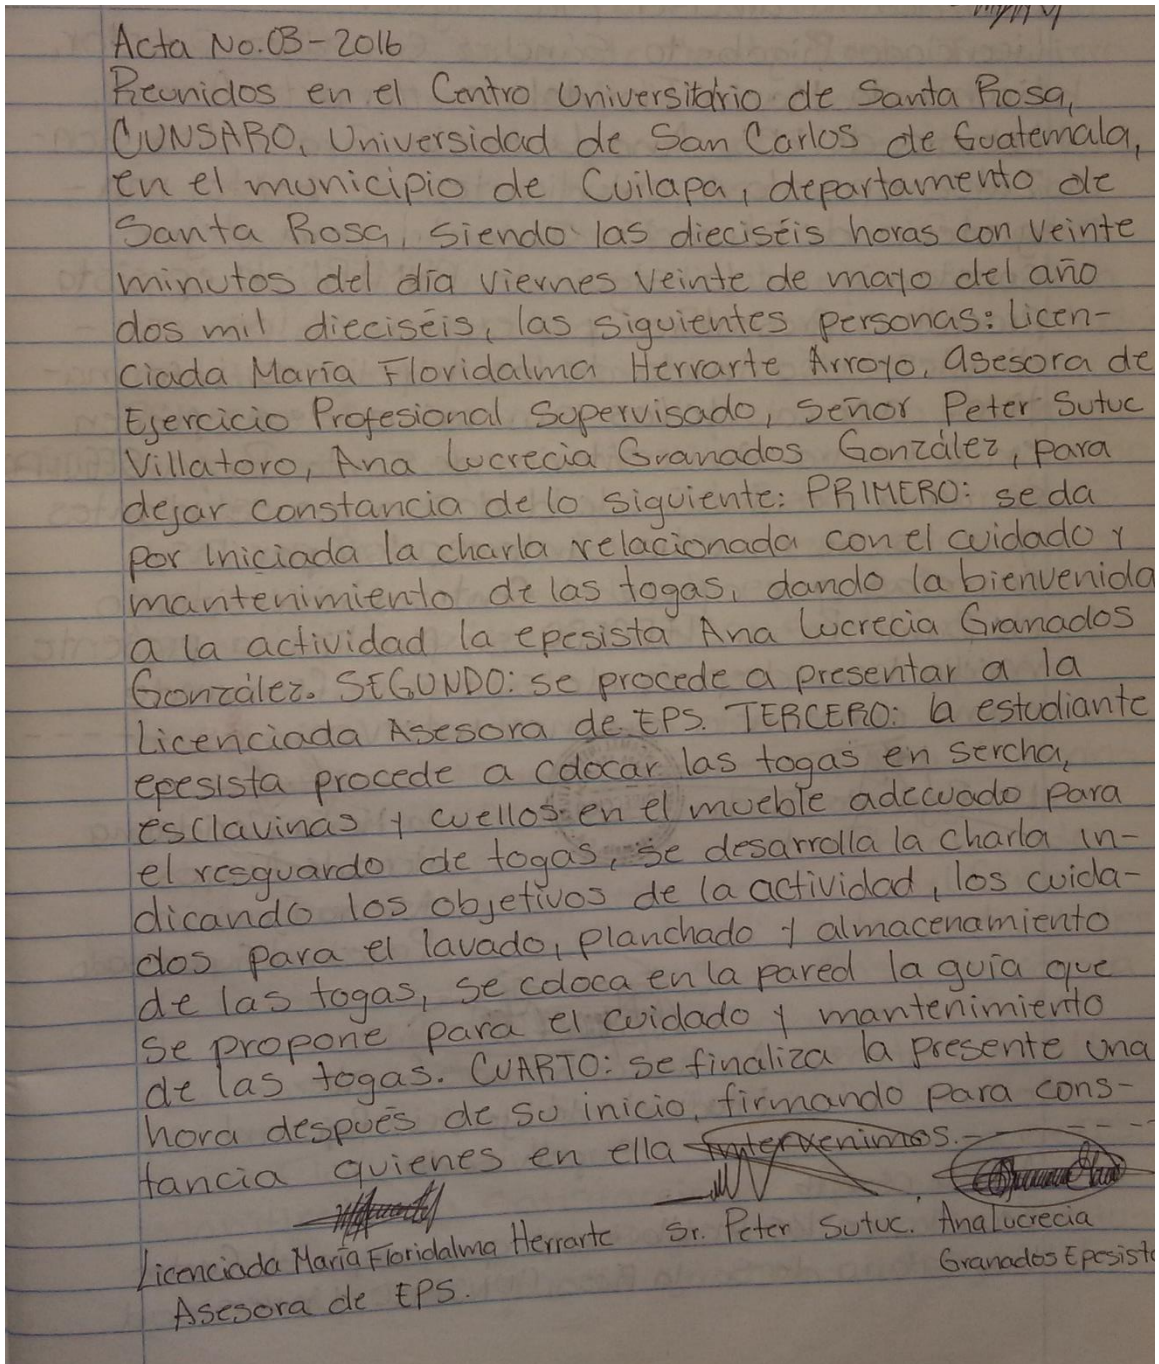 Acta No.03-2016
Reunidos en el Centro Universitario de Santa Rosa,
CUNSARO, Universidad de San Carlos de Guatemala,
en el municipio de Cuilapa, departamento de
Santa Rosa, siendo las dieciséis horas con veinte
minutos del día viernes veinte de mayo del año
dos mil dieciséis, las siguientes personas: Licen-
ciada María Floridalma Herrarte Arroyo, Asesora de
Ejercicio Profesional Supervisado, Señor Peter Sutuc
Villatoro, Ana Lucrecia Granados González, para
dejar constancia de lo siguiente: PRIMERO: se da
por iniciada la charla relacionada con el cuidado y
mantenimiento de las togas, dando la bienvenida
a la actividad la epesista Ana Lucrecia Granados
González. SEGUNDO: se procede a presentar a la
Licenciada Asesora de EPS. TERCERO: la estudiante
epesista procede a colocar las togas en sercha,
esclavinas y cuellos en el mueble adecuado para
el resguardo de togas, se desarrolla la charla in-
dicando los objetivos de la actividad, los cuida-
dos para el lavado, planchado y almacenamiento
de las togas, se coloca en la pared la guía que
se propone para el cuidado y mantenimiento
de las togas. CUARTO: se finaliza la presente una
hora después de su inicio, firmando para cons-
tancia quienes en ella intervenimos. - - - -
Licenciada María Floridalma Herrarte Sr. Peter Sutuc. Ana Lucrecia
Asesora de EPS. Granados Epesista